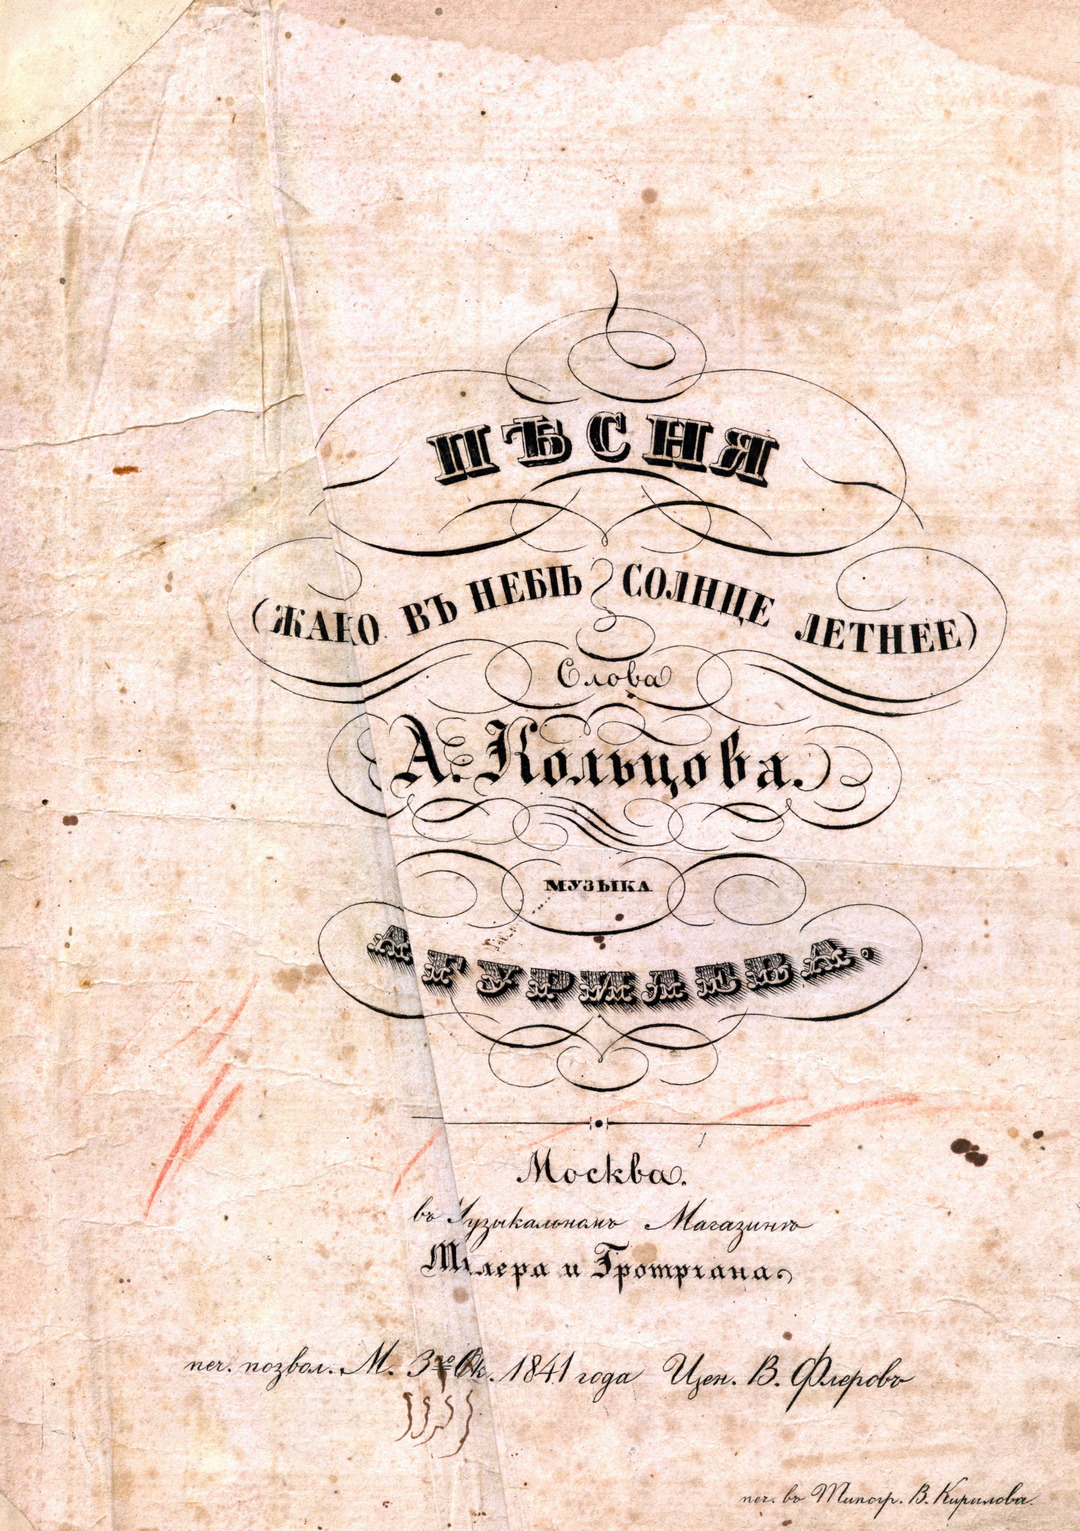 ПѢСНЯ
(ЖАКО ВЪ НЕБѢ СОЛНЦЕ ЛЕТНЕЕ)
Слова
А. Кольцова.
МУЗЫКА
А ГУРИЛЕВА.
Москва.
въ Музыкальномъ Магазинѣ
Милера и Гротриана
печ. позвол. М. 3го Ок. 1841 года Цен. В. Флеровъ
печ. въ Типогр. В. Кирилова.